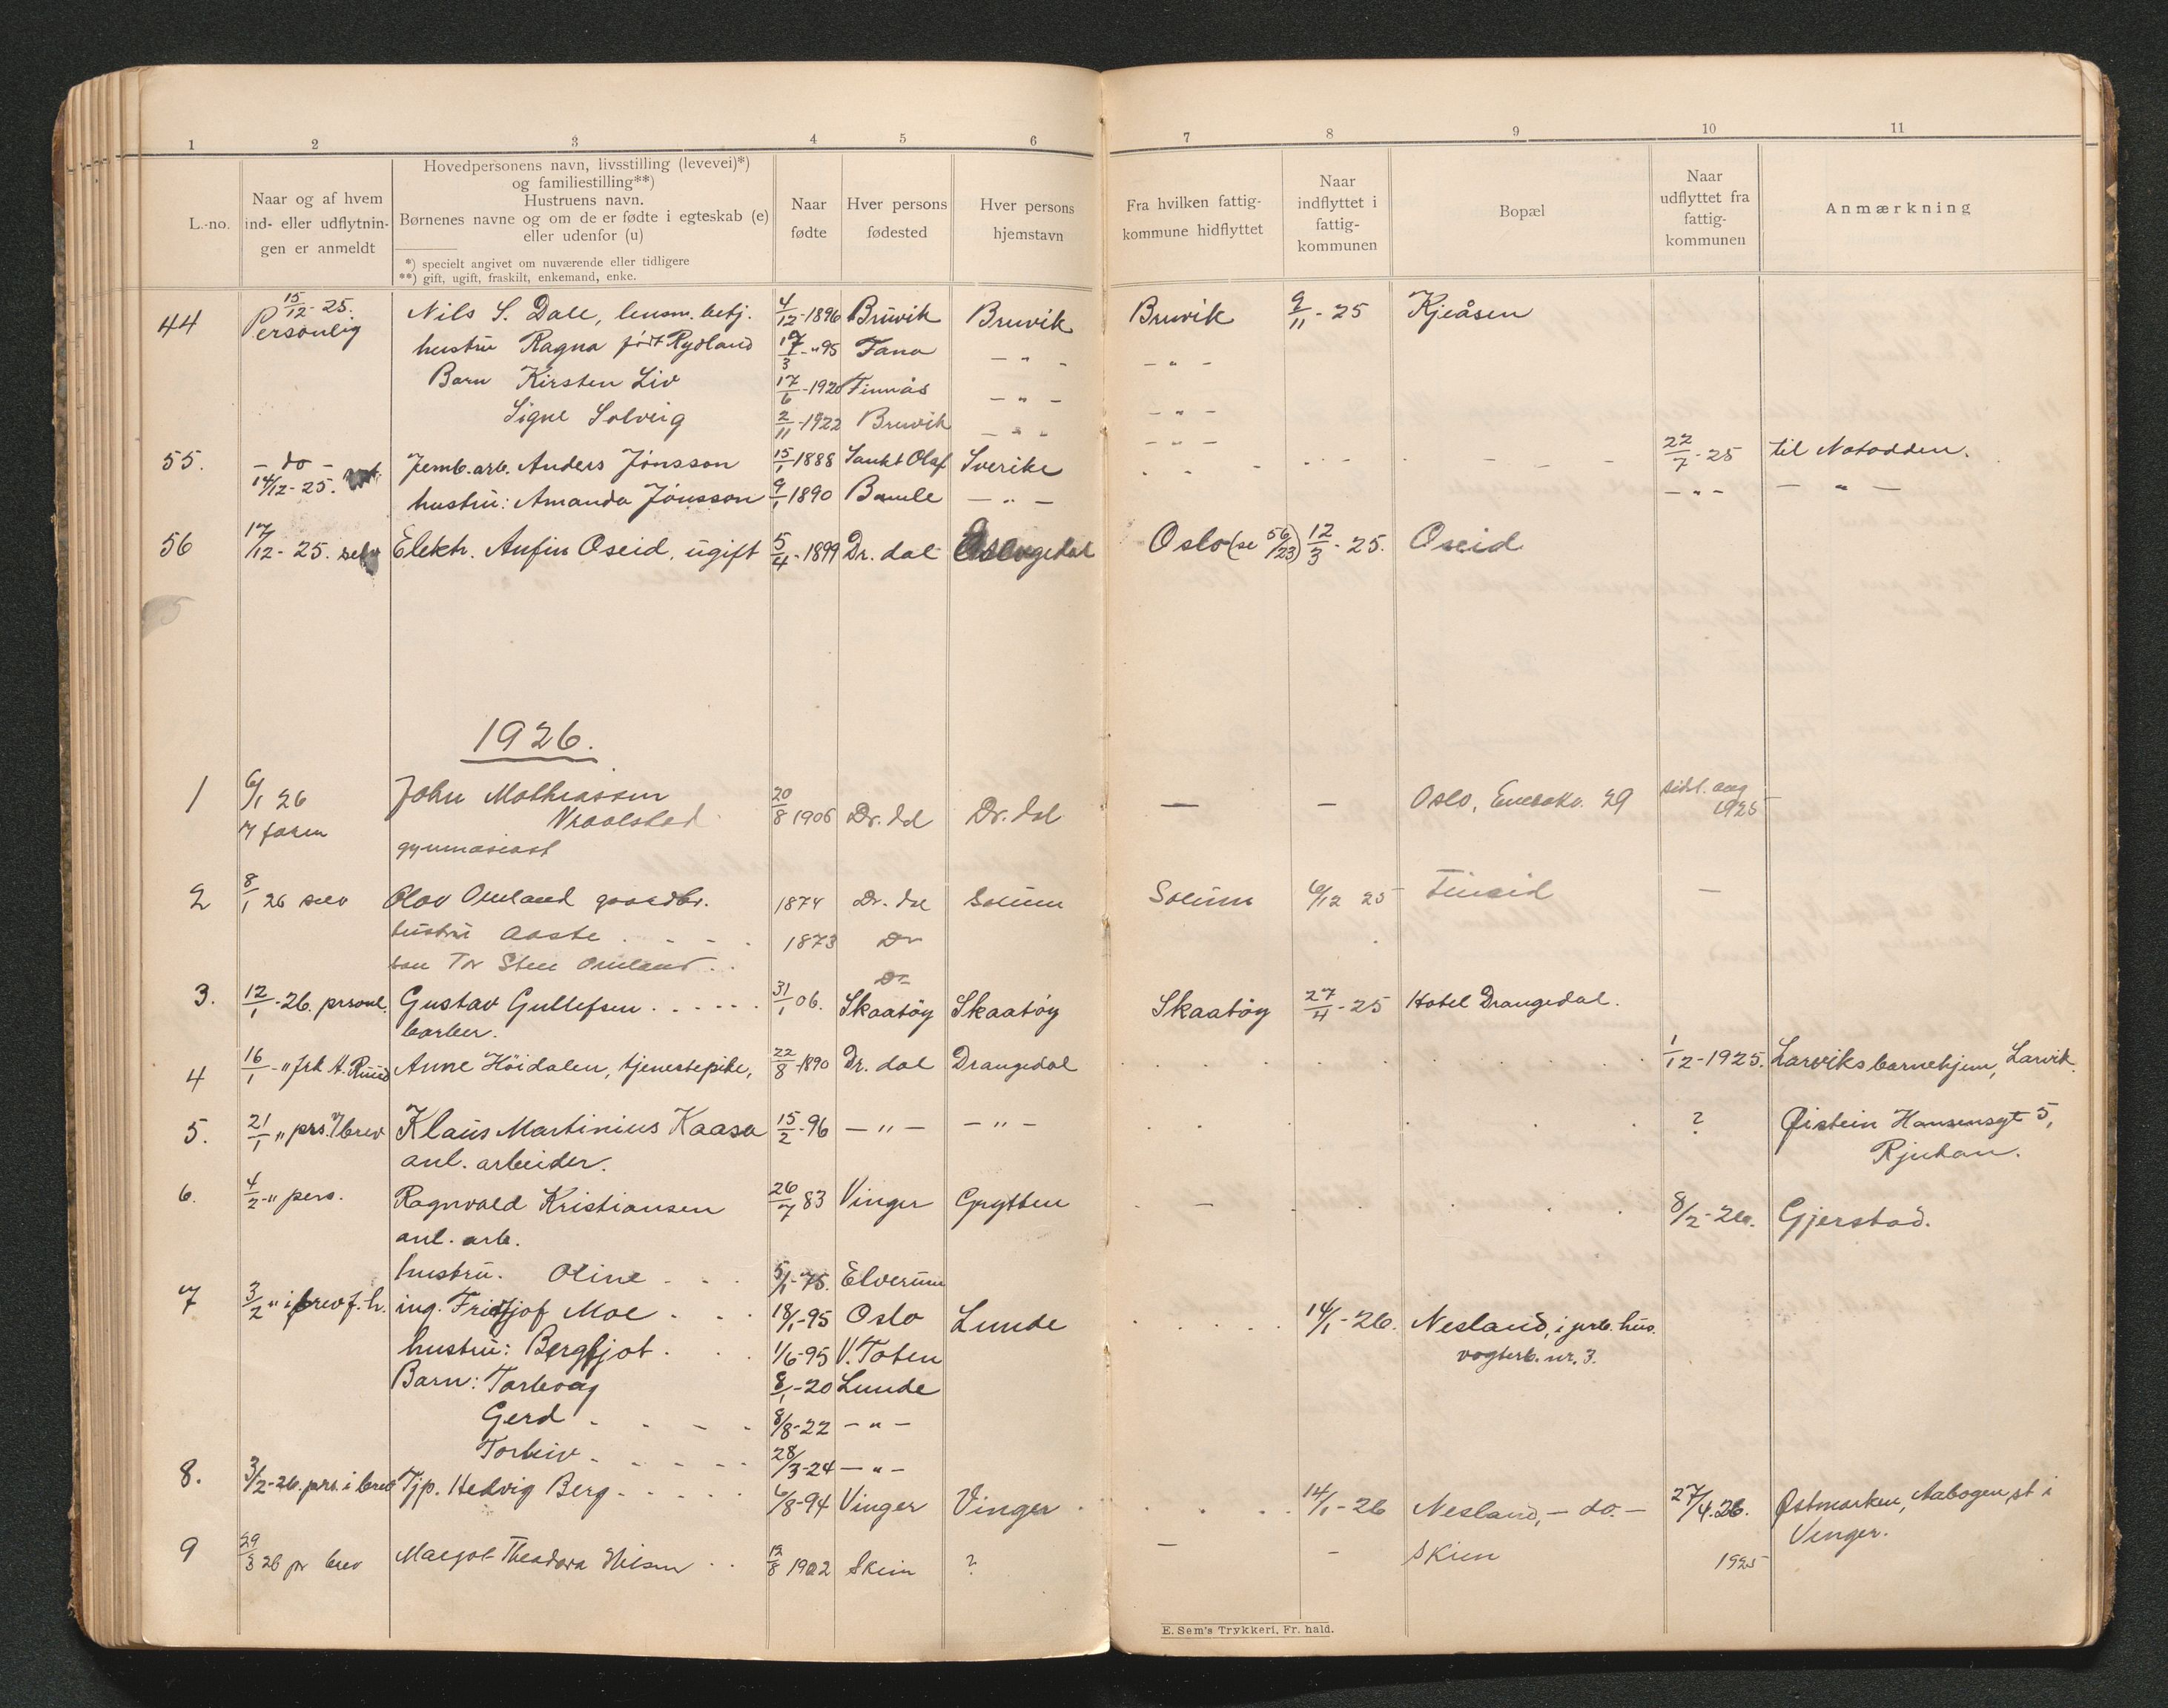 1 2 3 4 5 6 7 8 9 10 11
L.-no.
Naar og af hvem
ind- eller udflytnin-
gen er anmeldt
Hovedpersonens navn, livsstilling (levevei)*)
og familiestilling**)
Hustruens navn.
Børnenes navne og om de er fødte i egteskab (e)
eller udenfor (u)
*) specielt angivet om nuværende eller tidligere
**) gift, ugift, fraskilt, enkemand, enke.
Naar
fødte
Hver persons
fødested
Hver persons
hjemstavn
Fra hvilken fattig-
kommune hidflyttet
Naar
indflyttet i
fattig-
kommunen
Bopæl
Naar
udflyttet fra
fattig-
kommunen
Anmærkning
44 15/12-25. Personlig Nils S. Dale, lensm. betj. 4/12-1896 Bruvik Bruvik Bruvik 9/11-25 Kjeåsen
hustru Ragna født Rydland 17/3-"95 Fana - " - - " -
Barn Kirsten Liv 17/6-1920 Finnås - " - - " -
Signe Solveig 2/11-1922 Bruvik - " - - " -
55. - do - 14/12-25. Jernb.arb. Anders Jónsson 15/1 1888 Sankt Olaf Sverike 22/7-25 til Notodden.
hustru: Amanda Jónsson 9/1 1890 Bamle - " - - " - - " -
56 17/12-25. selv Elektr. Anfin Oseid, ugift 5/4-1899 Dr. dal Oslo (se 56/23) 12/3-25. Oseid
1926.
1 6/1 26 John Mathiassen 20/8 1906 Dr. dal Dr. dal — — Oslo, 29 1925
faren Vraalstad
gymnasiast
2 8/1 26 selv Olav Omland gaardbr. 1874 Dr. dal Solum Solum 6/12 25 —
hustru Aaste 1873 Dr
søn Tor Sten Omland Dr
3. 12/1-26. personl. Gustav Gullefsen 31/1 06. Skaatøy Skaatøy Skaatøy 27/11-25 Hotel Drangedal.
barber.
4 16/1-" frk A. Ruud Anne Höidalen, tjenestepike, 22/8-1890 Dr. dal Drangedal 1/12-1925. Larviks barnehjem, Larvik.
5. 21/1 " prs. i brev Klaus Martinius Kaasa 15/2-96 - " - - " - ? Øistein Hansensgt 5,
anl. arbeider. Rjukan.
6. 4/2-" pers. Ragnvald Kristiansen 26/7 83 Vinger Grytten — 8/2-26. Gjerstad.
anl. arb.
hustru. Oline 5/1-75. Elverum
7 3/2 " i brev f. h. ing. Fridtjof Moe 18/1-95 Oslo Lunde 14/1-26. Nesland, i jrb. hus.
hustru: Bergljot 1/6-95 V. Toten vogterb. nr. 3.
Barn: Torborg 8/1-20 Lunde
Gerd 8/8-22 - " -
Torleiv 28/3-24 - " -
8. 3/2-26. prs. i brev Tjp. Hedvig Berg 6/8-94 Vinger Vinger 14/1-26 Nesland, - do. - 27/4.26. Østmarken, Aabogen st i
Vinger.
9 29/3 26 pr brev Margot Theodora Nilsen 12/8 1902 Skien ? — — Skien 1925
E. Sem's Trykkeri, Fr. hald.